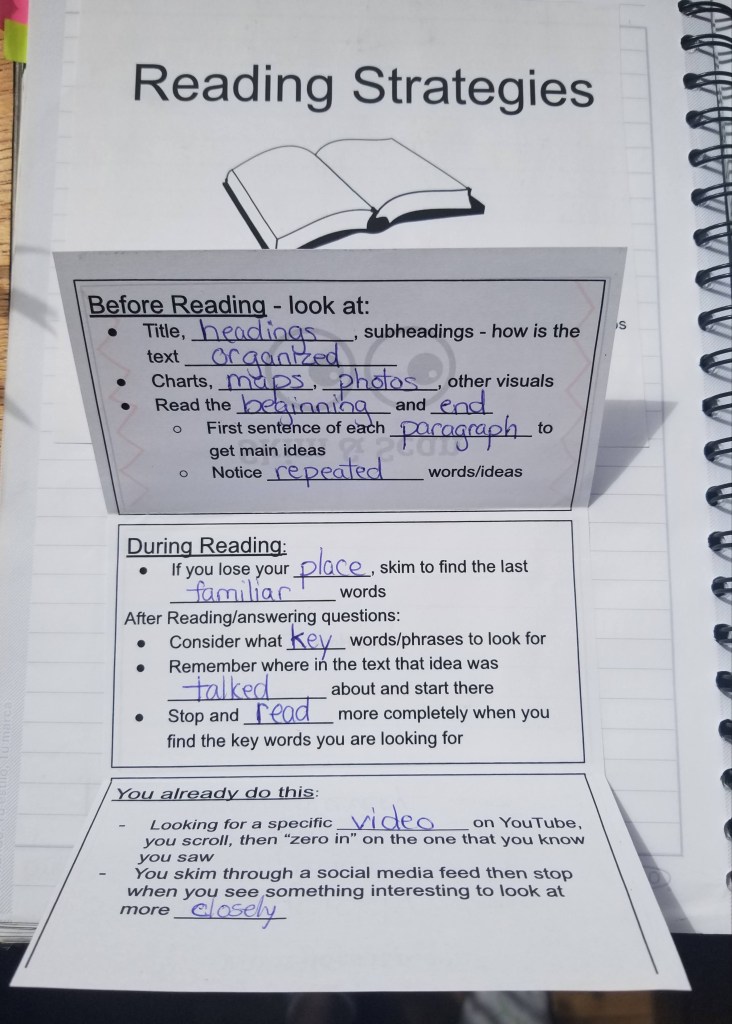 Reading Strategies
Before Reading - look at:
● Title, headings, subheadings - how is the
text organized
● Charts, maps, photos, other visuals
● Read the beginning and end
○ First sentence of each paragraph to
get main ideas
○ Notice repeated words/ideas
During Reading:
● If you lose your place, skim to find the last
familiar words
After Reading/answering questions:
● Consider what key words/phrases to look for
● Remember where in the text that idea was
talked about and start there
● Stop and read more completely when you
find the key words you are looking for
You already do this:
- Looking for a specific video on YouTube,
you scroll, then "zero in" on the one that you know
you saw
- You skim through a social media feed then stop
when you see something interesting to look at
more closely